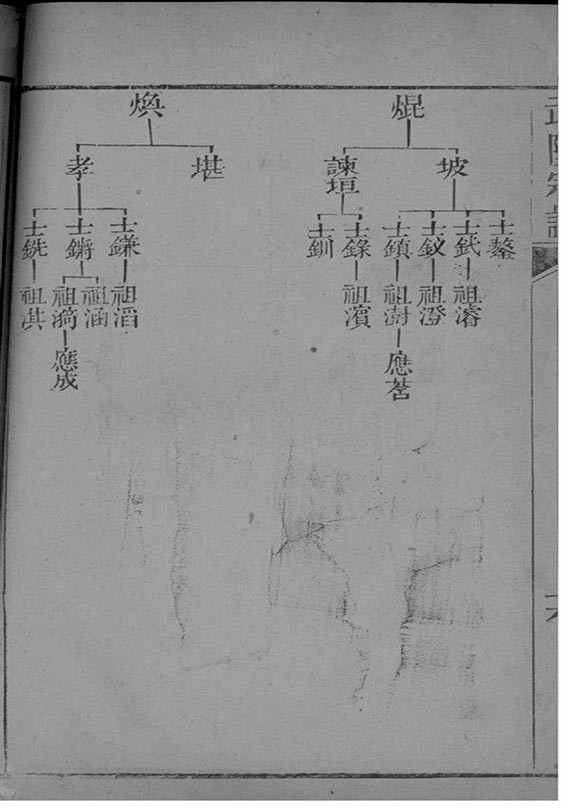 宗譜
焜
坡
諫垣
士鏊
士鉽
士釵
士鎮
士錄
士釧
祖濬
祖澄
祖澍
祖濱
應茗
煥
堪
孝
士鎌
士鏘
士銑
祖滔
祖涵
祖漪
祖淇
應成